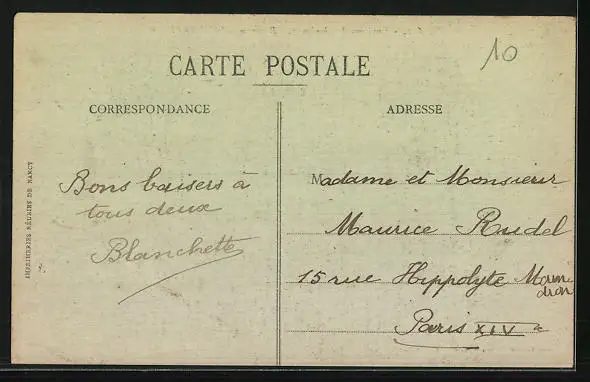 10
CARTE POSTALE
CORRESPONDANCE
ADRESSE
Bons baisers à
tous deux
Blanchette
Madame et Monsieur
Maurice Rudel
15 rue Hippolyte Main
dron
Paris XIV e
IMPRIMERIES RÉUNIES DE NANCY